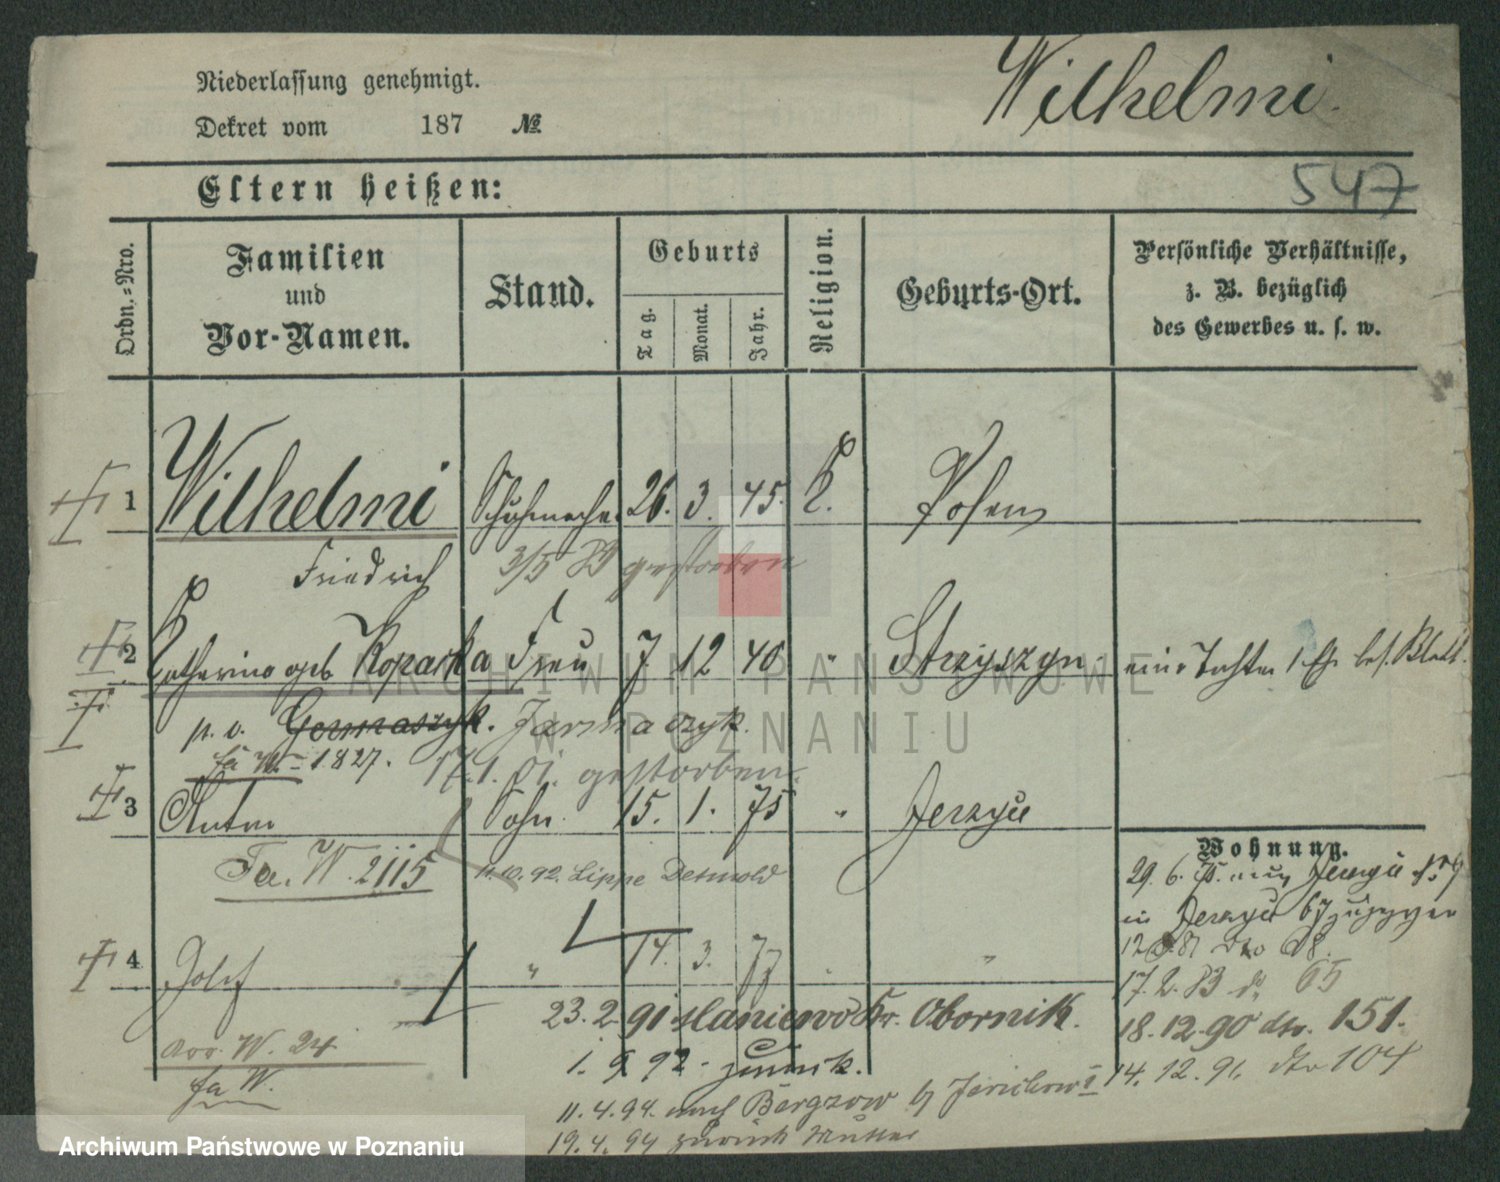 Niederlassung genehmigt.
Dekret vom 187 №
Wilhelmi.
547
Eltern heißen:
Ordn.-Nro.
Familien
und
Vor-Namen.
Stand.
Geburts
Tag.
Monat.
Jahr.
Religion.
Geburts-Ort.
Persönliche Verhältnisse,
z. B. bezüglich
des Gewerbes u. s. w.
1 Wilhelmi Schuhmacher 26. 3. 45. K. Posen
Friedrich 3/5 gestorben
2 Catharina geb Koparska Frau 7. 12 40 " Strzyszyn. eine Tochter 1. Ehe bes. Blatt.
p. v. Germaszyk. Jarmaczyk.
fa W. 1827. 17.1. gestorben.
3 Anton Sohn 15. 1. 75 " Jerzyce
Fa. W. 2115 11.10.92. Lippe Detmold
Wohnung.
29. 6. Jerzyce
in Jerzyce
4 Josef " 14. 3. 77 " "
17.2.83 65
23.2.91 Kr. Obornik. 18.12.90 dto. 151.
W. 24
1. 9 92 zurück. 14.12.91. dto 104
fa W.
11.4.94. nach Bergzow b/ Jerichow I
19.4.94 zurück Mutter
ARCHIWUM PAŃSTWOWE
W POZNANIU
Archiwum Państwowe w Poznaniu